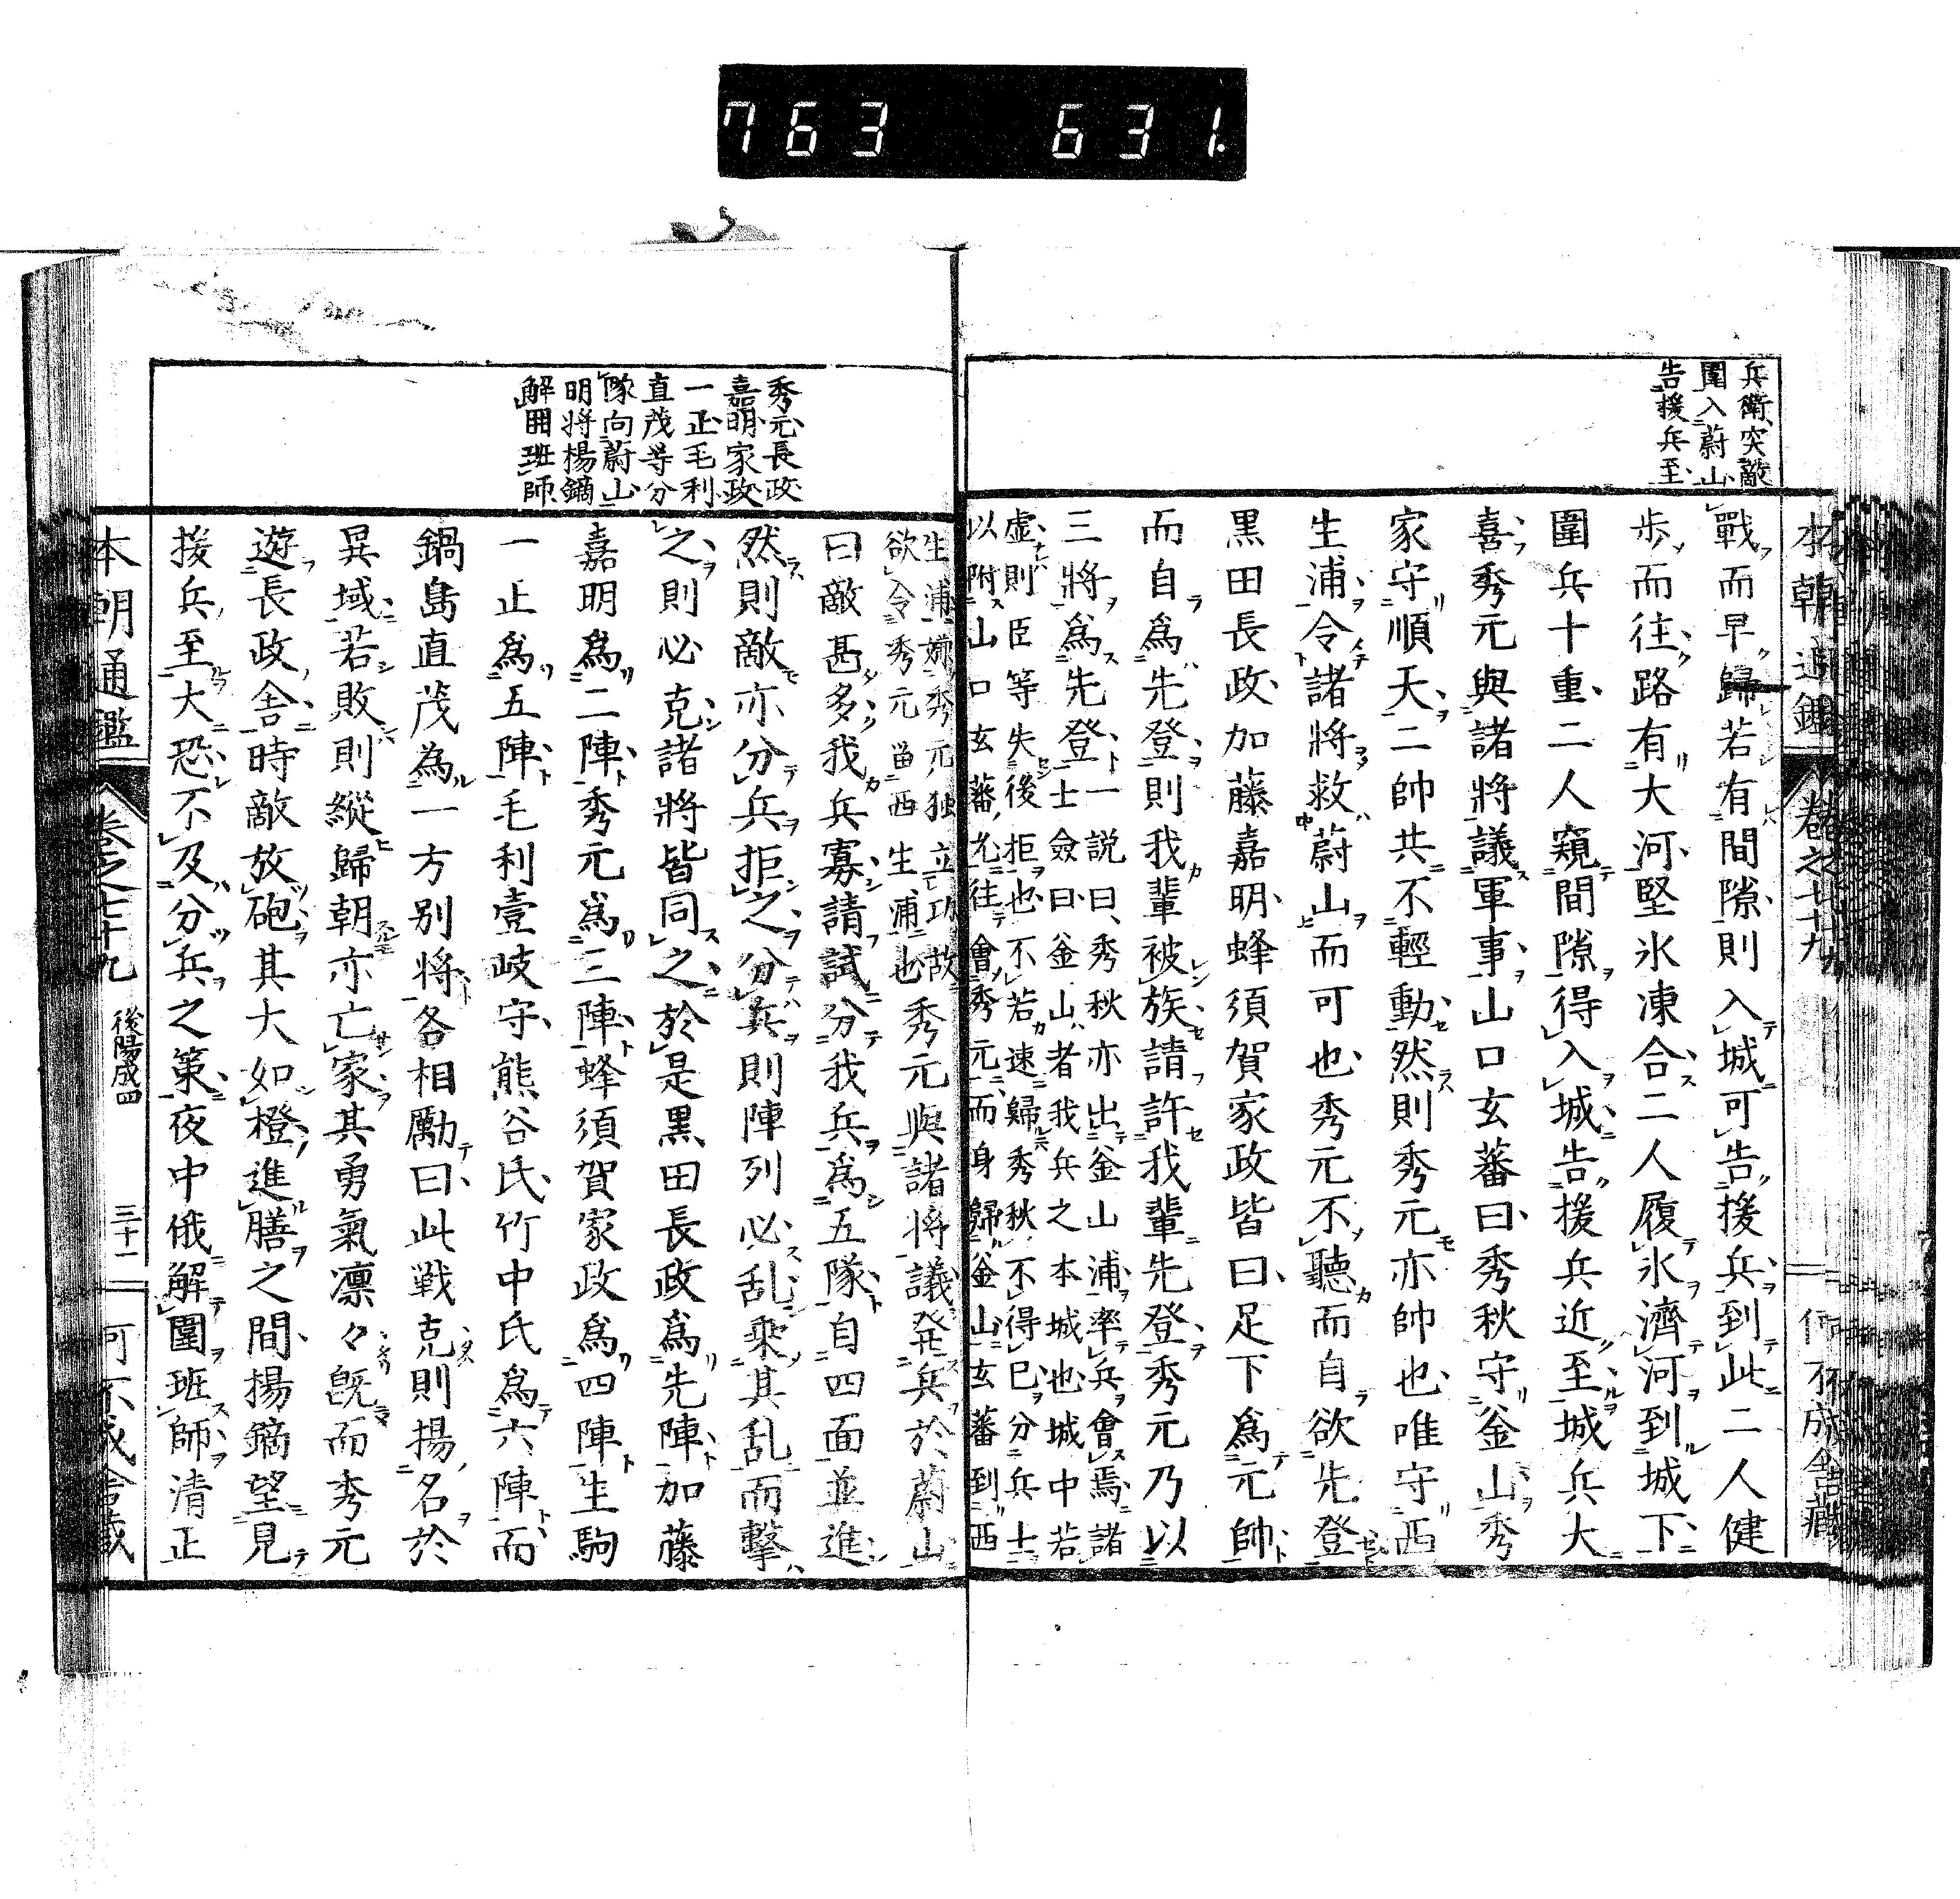 763 631.
兵衛突敵
圍入蔚山
告援兵至
戰而早歸若有間隙則入城可告援兵到此二人健
歩而往路有大河堅氷凍合二人履氷濟河到城下
圍兵十重二人窺間隙得入城告援兵近至城兵大
喜秀元與諸將議軍事山口玄蕃曰秀秋守釜山秀
家守順天二帥共不輕動然則秀元亦帥也唯守西
生浦令諸將救蔚山而可也秀元不聽而自欲先登
黒田長政加藤嘉明蜂須賀家政皆曰足下爲元帥
而自爲先登則我輩被族請許我輩先登秀元乃以
三將爲先登
一說曰秀秋亦出釜山浦率兵會焉諸
士僉曰釜山者我兵之本城也城中若
虚則臣等失後拒也不若速歸秀秋不得已分兵士
以附山口玄蕃允往會秀元而身歸釜山玄蕃到西
生浦
秀元独立功故
欲令秀元畄西生浦也
秀元與諸將議発兵於蔚山
曰敵甚多我兵寡請試分我兵爲五隊自四面並進
然則敵亦分兵拒之分兵則陣列必乱乘其乱而擊
之則必克諸將皆同之於是黒田長政爲先陣加藤
嘉明爲二陣秀元爲三陣蜂須賀家政爲四陣生駒
一正爲五陣毛利壹岐守熊谷氏竹中氏爲六陣而
鍋島直茂為一方别將各相勵曰此戦克則揚名於
異域若敗則縱歸朝亦亡家其勇氣凛々旣而秀元
遊長政舎時敵放砲其大如橙進膳之間揚鏑望見
援兵至大恐不及分兵之策夜中俄解圍班師清正
秀元長政
嘉明家政
一正毛利
直茂等分
隊向蔚山
明將楊鏑
解囲班師
本朝通鑑
卷之七十九
後陽成四
三十二